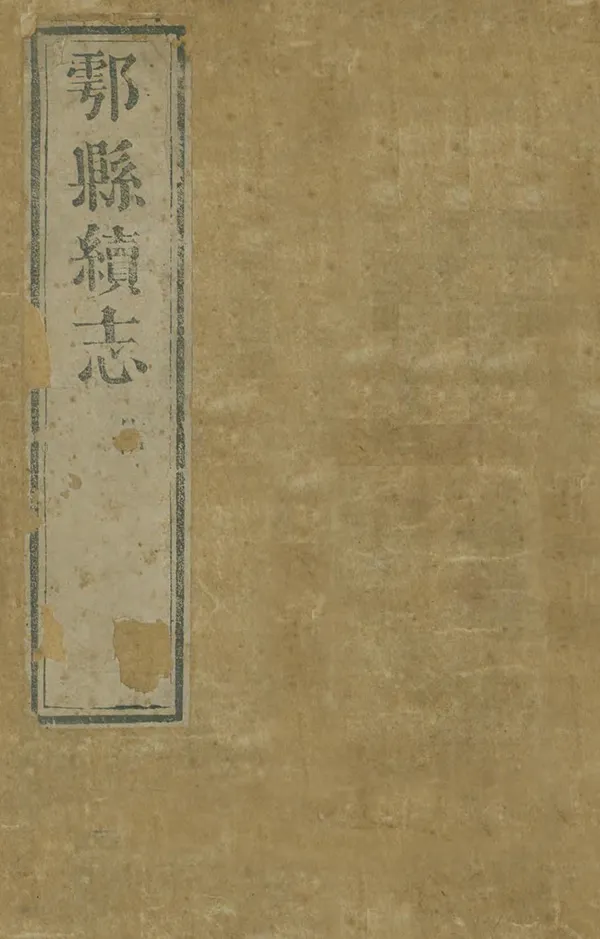 鄠縣續志